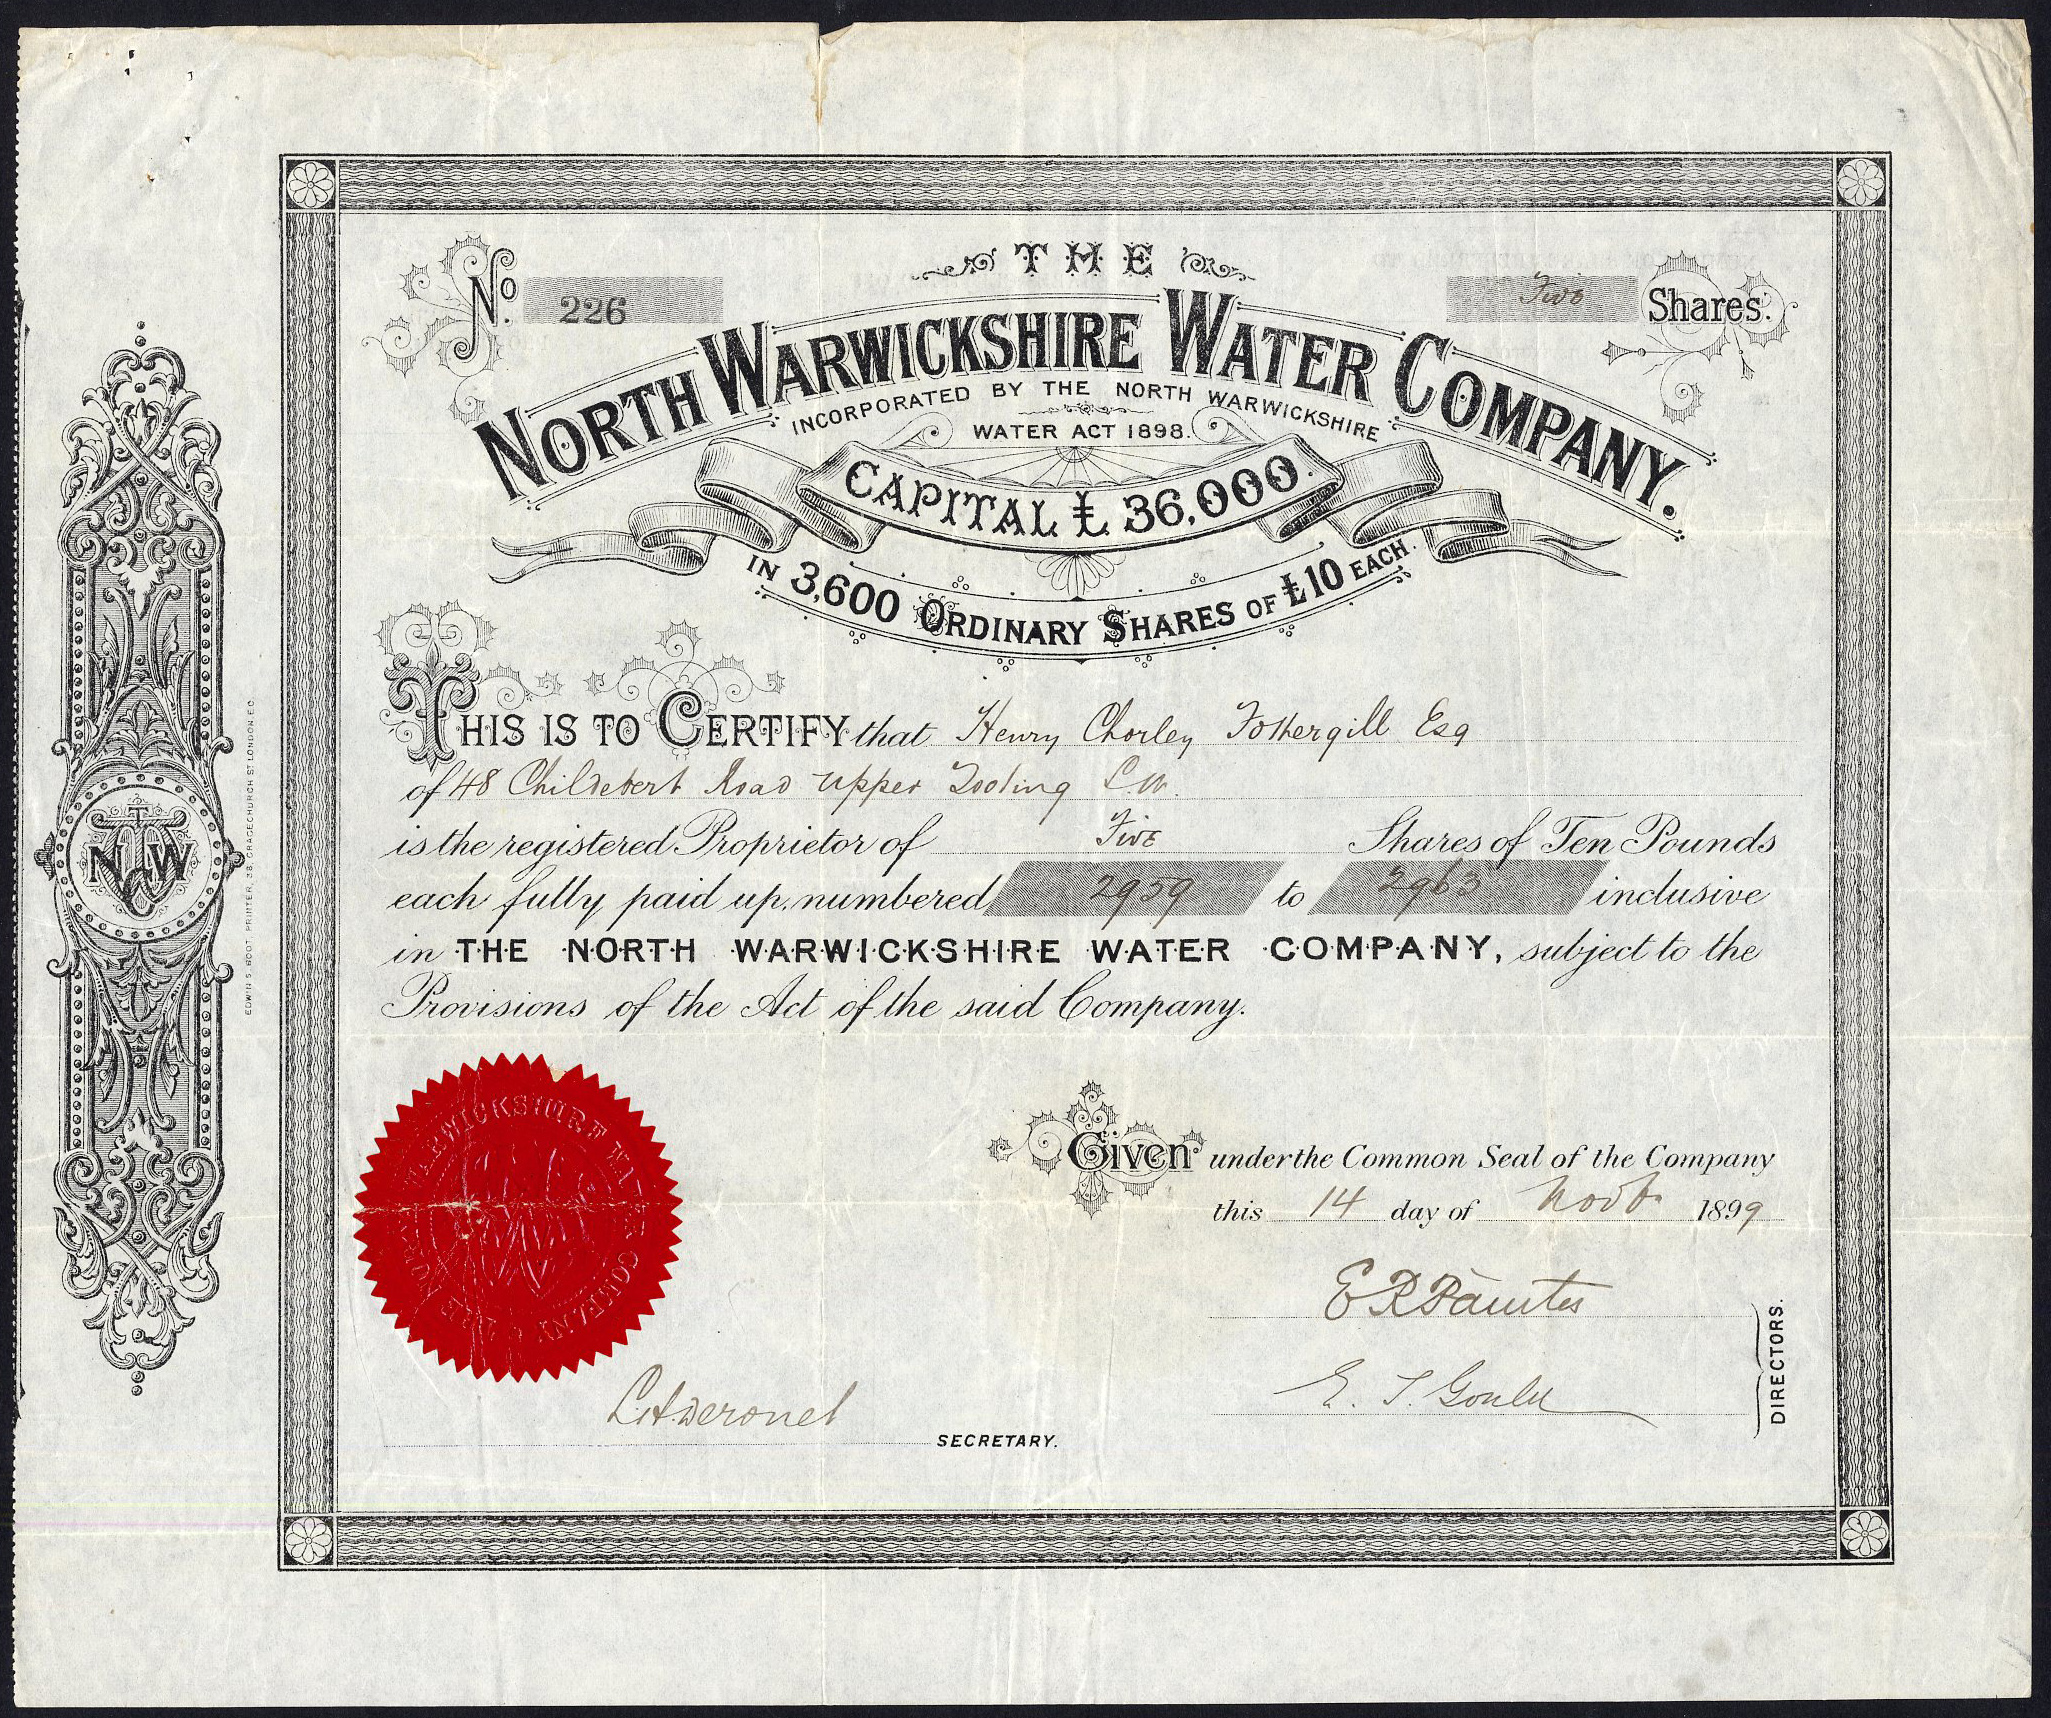 THE
No. 226
Five Shares.
NORTH WARWICKSHIRE WATER COMPANY.
INCORPORATED BY THE NORTH WARWICKSHIRE
WATER ACT 1898.
CAPITAL £36,000.
IN 3,600 ORDINARY SHARES OF £10 EACH.
THIS IS TO CERTIFY that Henry Chorley Fothergill Esq
of 48 Childebert Road Upper Tooting S.W.
is the registered Proprietor of Five Shares of Ten Pounds
each fully paid up, numbered 2959 to 2963 inclusive
in THE NORTH WARWICKSHIRE WATER COMPANY, subject to the
Provisions of the Act of the said Company.
NORTH WARWICKSHIRE WATER COMPANY
Given under the Common Seal of the Company
this 14 day of Novb. 1899
E. T. Gould
DIRECTORS.
SECRETARY.
T N W C
EDWIN S. BOOT, PRINTER, 38, GRACECHURCH ST. LONDON E.C.